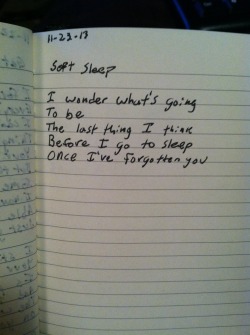 11-23-13
Soft Sleep
I wonder what's going
To be
The last thing I think
Before I go to sleep
Once I've forgotten you